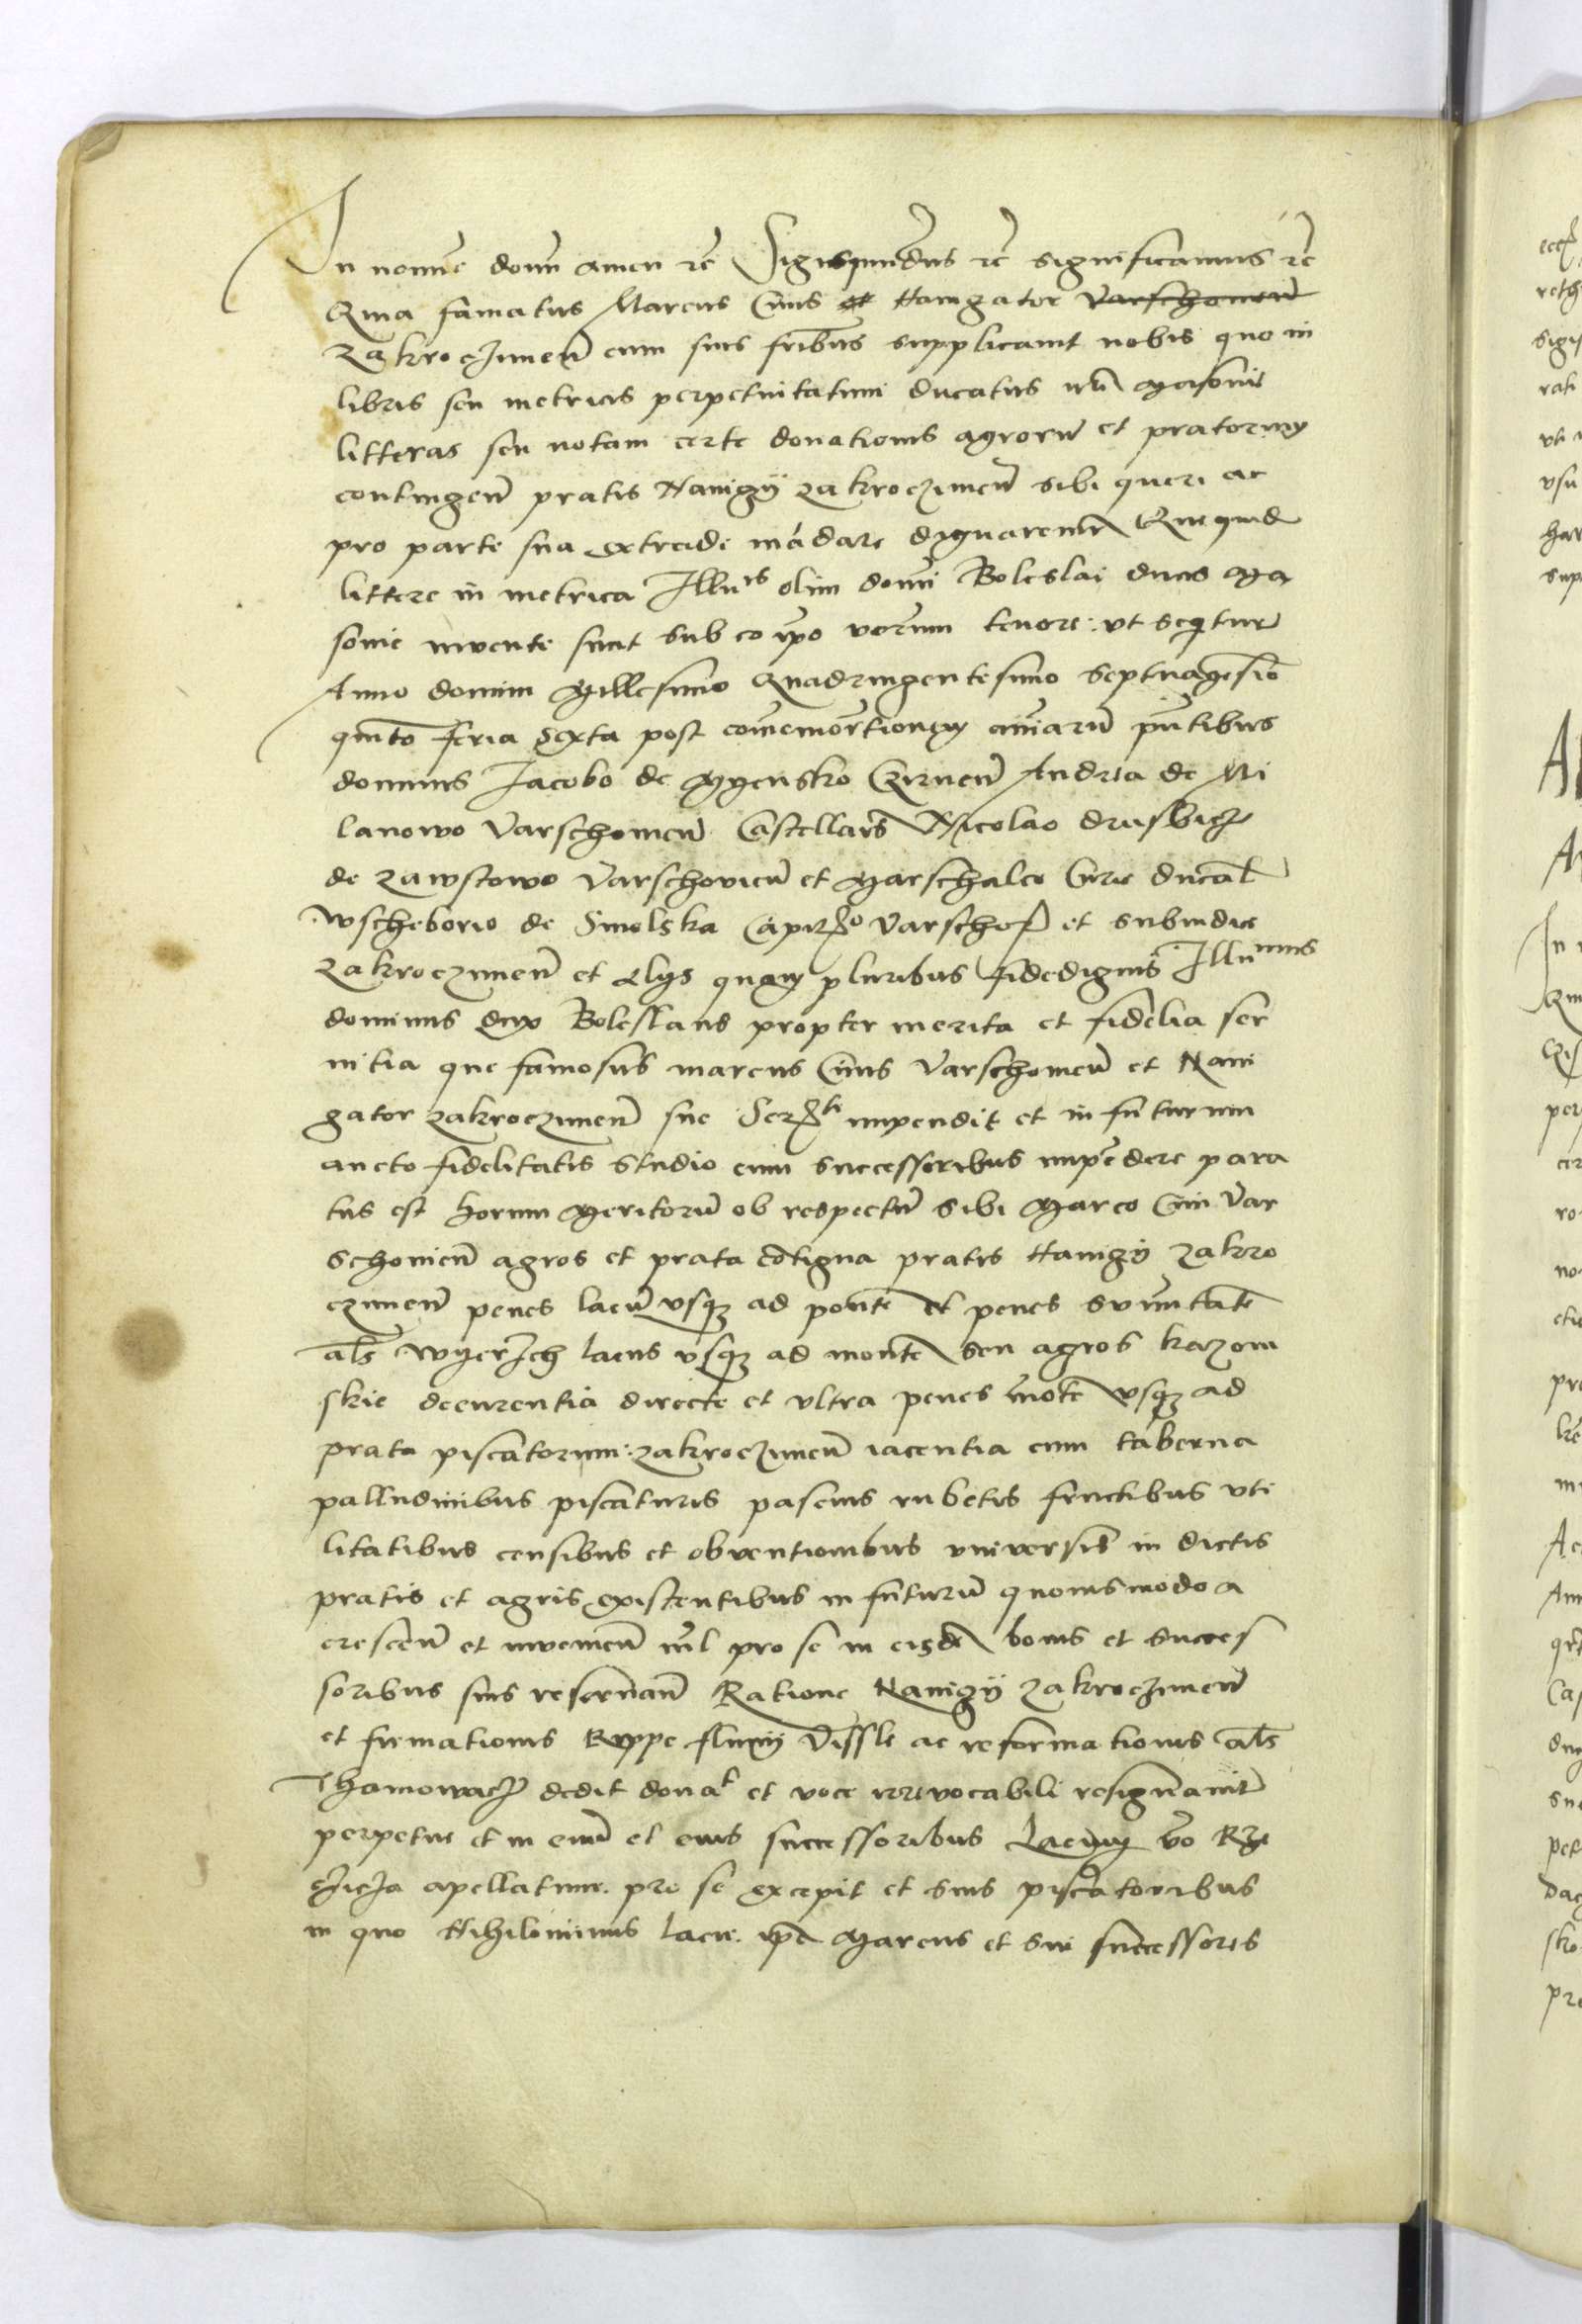 In nomie domi amen rc Sigismundus rc significamus rc
Quia famatus Marcus Civis et Navigator Varschovien
Zakroczimen cum suis fribus supplicavit nobis quo in
libris seu metricis perpetuitatum ducatus nri Masovie
litteras seu notam certe donationis agroru et pratorum
contingen pratis Navigy Zakroczimen sibi queri ac
pro parte sua extrade madare dignaremr Quequid
littere in metrica Illuis olim domi Boleslai ducis Ma
sovie invente sunt sub eo ipo verum tenore ut seqtur
Anno domini Millesimo Quadringentesimo septuagesio
quito feria sexta post comemortionem aiarum pntibus
dominis Jacobo de Gyensko Czirnen Andrea de Mi
lanowo Varschovien Castellais Nicolao drusbicz
de Zawstowo Varschovien et Marschalco Curie ducat
Wscheborio de Smolska Capito Varschof et subiudice
Zakroczimen et Alys quam pluribus fidedignis Illuimus
dominus dux Boleslaus propter merita et fidelia ser
vitia que famosus marcus Civis Varschovien et Navi
gator Zakroczimen sue Serti impendit et in futurum
aucto fidelitatis studio cum successoribus impedere para
tus est horum Meritoru ob respectu sibi Marco Civi Var
schovien agros et prata cotigua pratis Navigy Zakro
czimen penes lacu usq ad ponte et penes sumitate
als Wyerzch lacus usq ad monte seu agros kazom
skie decurentia directe et ultra penes mote usq ad
prata piscatorum Zakroczimen iacentia cum taberna
palludinibus piscaturis pascuis rubetis fructibus uti
litatibus censibus et obventionibus universis in dictis
pratis et agris existentibus in futuru quovismodo a
crescen et invenien nil pro se in eisde bonis et succes
soribus suis reservan Ratione Navigy Zakroczimen
et firmationis Ryppe fluvy Vissle ac reformationis als
Thamowacz dedit donat et voce irrevocabili resignavit
perpetue et in evu et eius successoribus Lacum vo Rze
czicza apellatum pro se excepit et suis piscatoribus
in quo Nihilominus lacu ipe Marcus et sui successores